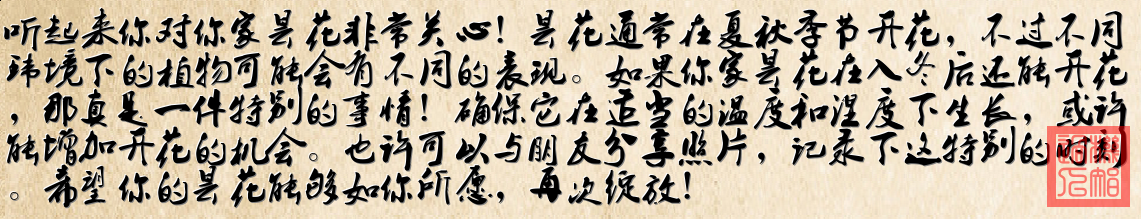 听起来你对你家昙花非常关心！昙花通常在夏秋季节开花，不过不同
环境下的植物可能会有不同的表现。如果你家昙花在入冬后还能开花
，那真是一件特别的事情！确保它在适当的温度和湿度下生长，或许
能增加开花的机会。也许可以与朋友分享照片，记录下这特别的时刻
。希望你的昙花能够如你所愿，再次绽放！